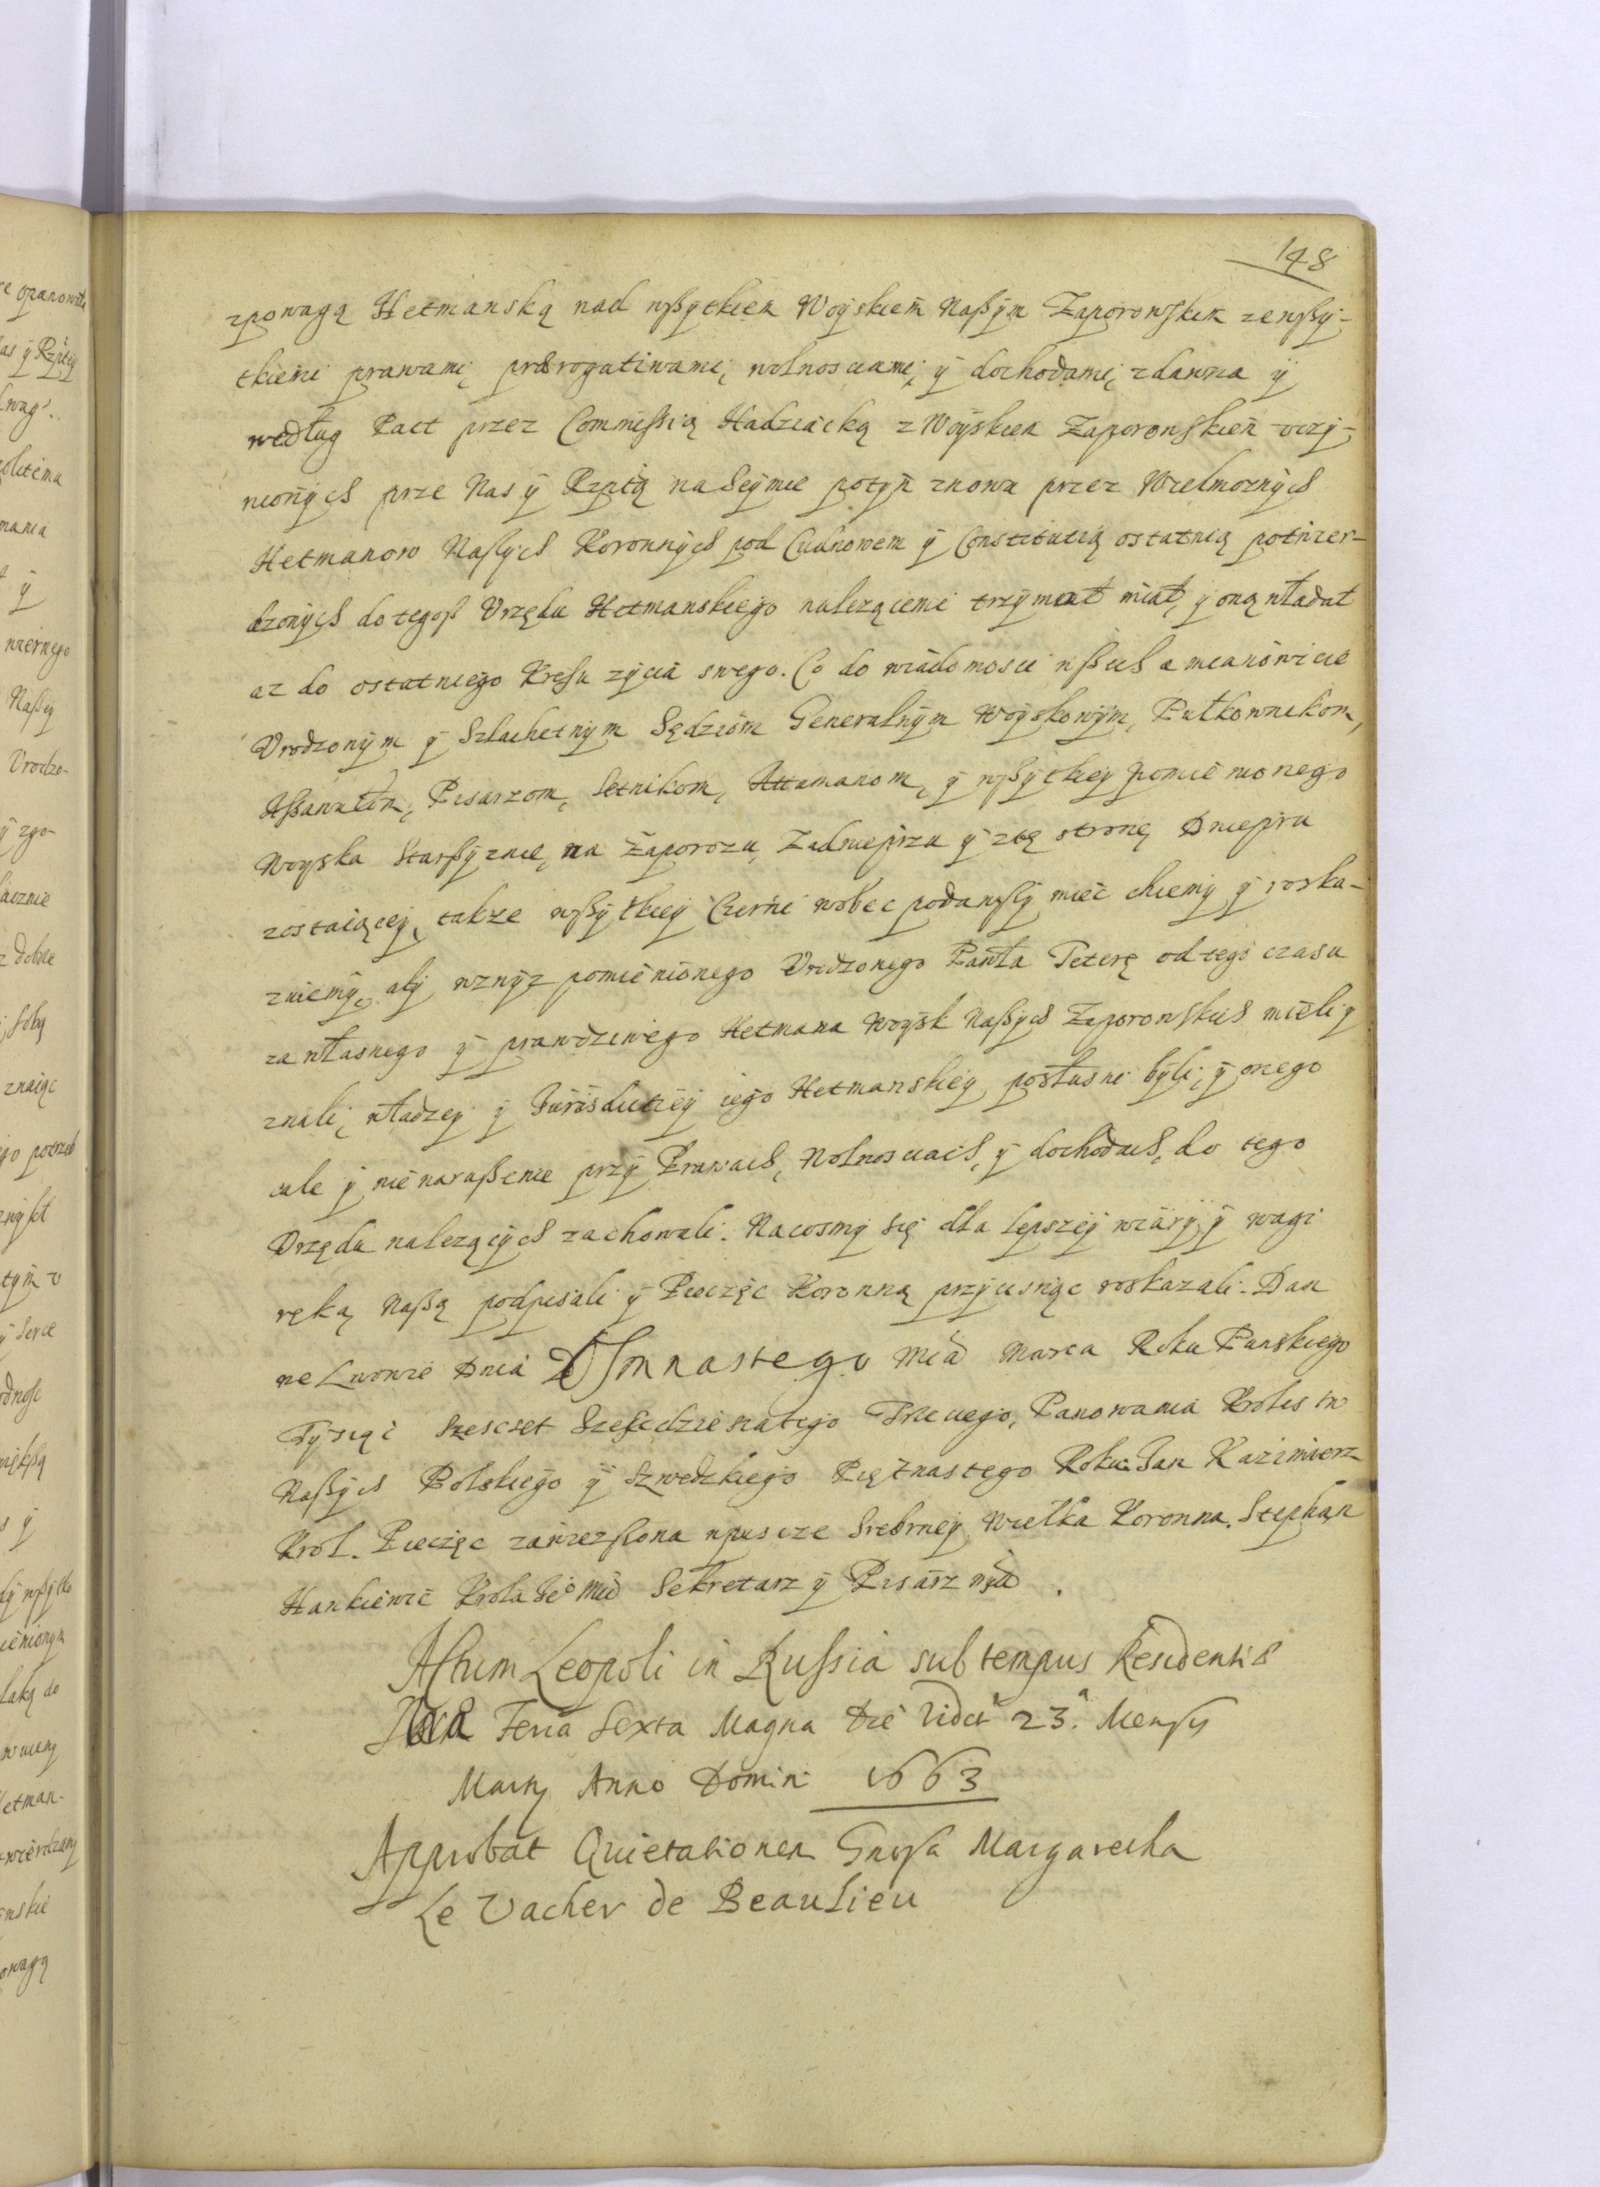 148
zpowagą Hetmanską nad wszytkiem Woyskiem Naszym Zaporowskim ze wszy-
tkiemi prawami, prærogatiwami, wolnosciami, y dochodami, zdawna y
według Pact przez Commissią Hadziacką z Woyskiem Zaporowskiem vczy-
nionych prze Nas y Rzptą na Seymie potym znowu przez Wielmoznych
Hetmanow Naszych Koronnych pod Cudnowem y Constitutią ostatnią potwier-
dzonych do tegosz Vrzędu Hetmanskiego nalezącemi trzymał miał, y oną władał
az do ostatniego Kresu zycia swego. Co do wiadomosci wszech a mianowicie
Vrodzonym y Szlachetnym Sędziom Generalnym Woyskowym, Pułkownikom,
Assawułom, Pisarzom, Setnikom, Attamanom, y wszytkiey pomienionego
Woyska Starszyznie, na Zaporozu, Zadnieprzu y z tę stronę Dniepru
zostaiącey, takze wszytkiey Czerni wobec podawszy miec chcemy y roska-
zuiemy, aby wznyz pomienionego Vrodzonego Pawła Teterę od tego czasu
za własnego y prawdziwego Hetmana Woysk Naszych Zaporowskich mieli y
znali, władzey y Jurisdictiey iego Hetmanskiey posłusni byli, y onego
cale y nienaruszenie przy Prawach, Wolnosciach, y dochodach, do tego
Vrzędu nalezących zachowali. Na cosmy się dla lepszey wiary y wagi
ręką Naszą podpisali y Pieczęc Koronną przycisnąc roskazali. Dan
we Lwowie Dnia Osmnastego Mca Marca Roku Panskiego
Tysiąc Szescset Szescdziesiatego Trzeciego, Panowania Krolestw
Naszych Polskiego y Szwedzkiego Piętnastego Roku. Jan Kazimierz
Krol. Pieczęc zawieszona w puszce Srebrney Wielka Koronna. Stephan
Hankiewic Krola Jeo Mci Sekretarz y Pisarz
Actum Leopoli in Russia sub tempus Residentiæ
Feria Sexta Magna Die Vidct 23ª. Mensis
Martij Anno Domini 1663
Approbat Quietationem Gnosa Margarecha
Le Vacher de Beaulieu